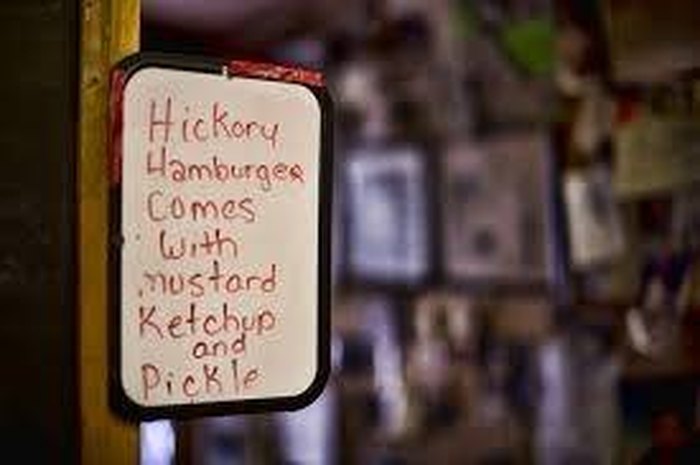 Hickory
Hamburger
Comes
With
mustard
Ketchup
and
Pickle